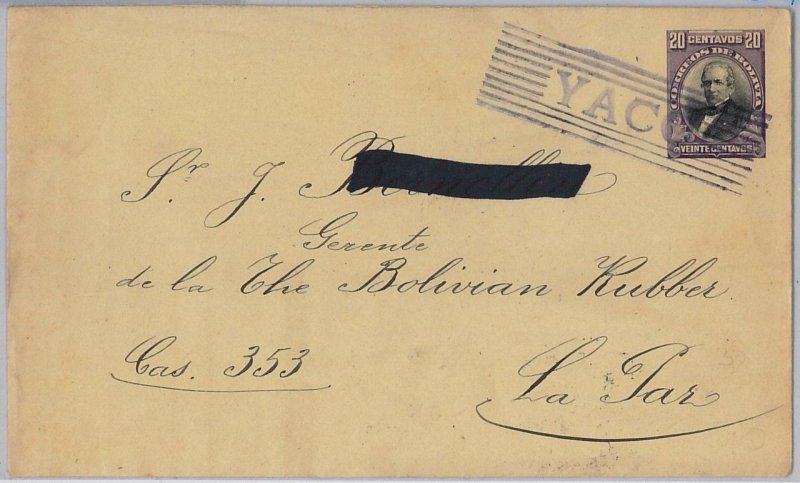 20 CENTAVOS 20
CORREOS DE BOLIVIA
VEINTE CENTAVOS
Sr. J.
Gerente
de la The Bolivian Rubber
Cas. 353
La Paz